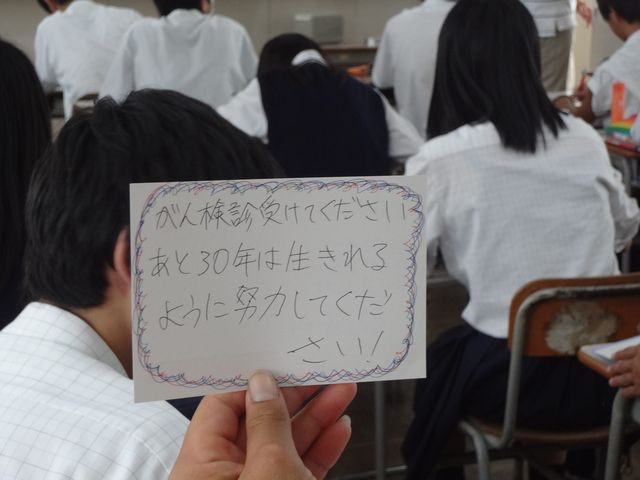 がん検診受けてください
あと30年は生きれる
ように努力してくだ
さい!